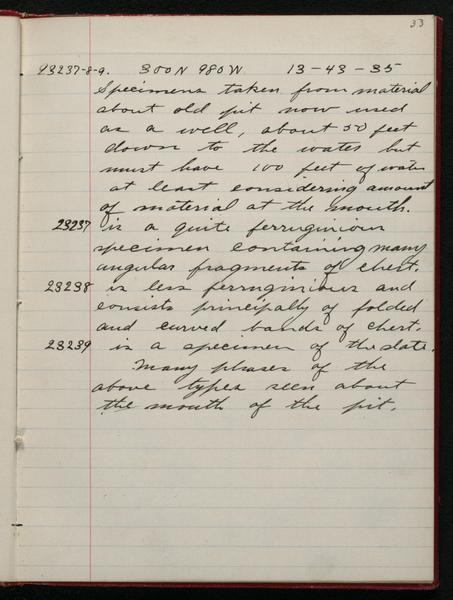 33
23237-8-9. 300N 980W. 13-43-35
Specimens taken from material
about old pit now used
as a well, about 50 feet
down to the water but
must have 100 feet of water
at least considering amount
of material at the mouth.
23237 is a quite ferruginious
specimen containing many
angular fragments of chert.
23238 is less ferruginious and
consists principally of folded
and curved bands of chert.
23239 is a specimen of the slate.
Many phases of the
above types seen about
the mouth of the pit.